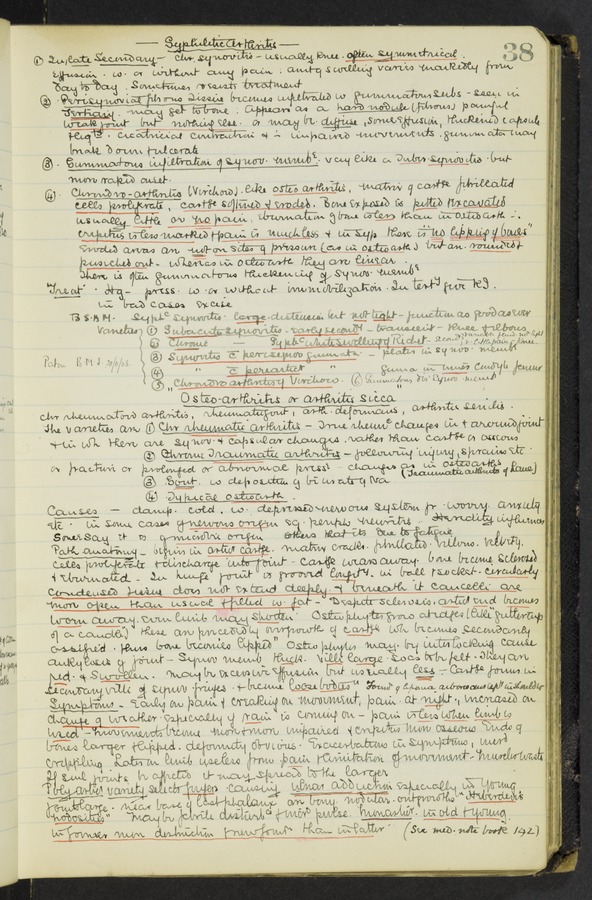 38
— Syphilitic Arthritis —
① In late Secondary — chr. synovitis — usually knee. often symmetrical.
Effusion. w. or without any pain. amt of swelling varies markedly from
day to day. Sometimes resists treatment
② Perisynovial fibrous tissue becomes infiltrated w gummatous subs - seen in
Tertiary. may get to bone. Appears as a hard nodule (fibrous) painful
weak joint but nothing else. or may be diffuse, some effusion, thickened capsule
cicatricial contraction & impaired movements. gummata may
break down & ulcerate
③. Gummatous infiltration of synov. membe. very like a Tuber. synovitis. but
more rapid onset.
④. Chondro-arthritis (Virchow). like osteo arthritis, matrix of cartge fibrillated
cells proliferate, cartge softened & eroded. Bone exposed is pitted & excavated
usually little or no pain. eburnation of bone is less than in osteoarth ∴
crepitus is less marked & pain is much less & in syph there is "no lipping of bones"
Eroded areas are not on sites of pressure (as in osteoarth) but are rounded &
punched out - whereas in osteoarth they are linear.
There is often gummatous thickening of synov. membe
Treat. Hg — press. w. or without immobilization. In terty give KI.
in bad cases excise
Syphc Synovitis. large distension but not tight - function as good as ever
Varieties ① Subacute Synovitis - early secondy - transient - knee & elbows
② Chronic — Syphc White swelling of Richet.
③ Synovitis c̄ perisynov gummata - plates in synov. membe
④ " c̄ periarteritis " gumma in inner condyle femur
⑤ Chondro arthritis of Virchow. ⑥ Gummatous dis synov. membe
"Osteo-arthritis or arthritis sicca"
chr rheumatoid arthritis, rheumatic gout, arth. deformans, arthritis senilis.
The varieties are ① Chr rheumatic arthritis - True rheume changes in & around joint
& in wh there are synov. & capsular changes rather than cartge or osseous
② Chronic Traumatic arthritis - following injury, sprains etc.
or fracture or prolonged or abnormal pressr - changes as in osteoarths (Traumatic arthritis of Lane)
③ Gout. w deposition of biurate of Na
④ Typical osteoarth.
Causes — damp. cold. w. depressed nervous system fr. worry. anxiety
etc. in some cases of nervous origin eg. periph neuritis. Heredity influences
Some say it is of microbic origin others that its due to fatigue
Path anatomy - begins in artic cartge. matrix cracks. fibrillated. villous. velvety.
cells proliferate & discharge into joint - cartge wears away. bone become sclerosed
& eburnated. In hinge joint is grooved longitly. in ball & socket - circularly
Condensed tissue does not extend deeply, & beneath it cancelli are
more open than usual & filled w fat - Despite sclerosis, articr end becomes
worn away. even limb may shorten. Osteophytes grow at edges (like "gutterings
of a candle") these are preceded by overgrowth of cartge wh becomes secondarily
ossified. Thus bone becomes lipped. Osteophytes may by interlocking cause
ankylosis of joint - Synov memb thick. Villi large. Sacs to be felt. They are
red. & Swollen. may be excessive effusion but usually less - Cartge forms in
secondary villi of synov fringes & become loose bodies.
Symptoms - Early on pain & creaking on movement, pain at night, increased on
change of weather especially if rain is coming on - pain is less when limb is
used - movements become more & more impaired & crepitus more osseous. Ends of
bones larger & lipped. deformity obvious. Exacerbations in symptoms, most
crippling. Later on limb useless from pain & limitation of movement - muscles waste
If small joints be affected it may spread to the larger
Polyarticr variety selects fingers causing ulnar adduction especially in young
joints large. near base of last phalanx are bony. nodular. outgrowths "Heberden's
nodosities" may be febrile disturbce & more pulse. in old & young.
in former more destruction of new joint than in latter (See med. note book 142)